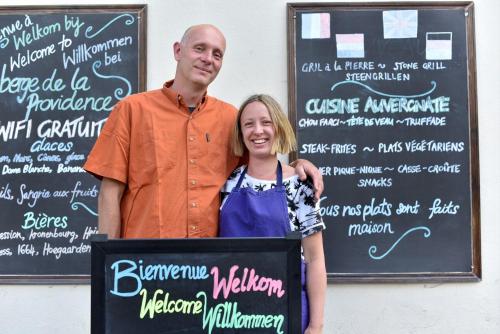 Welkom bij
Welcome to
Willkommen bei
berge de la
Providence
WIFI GRATUIT
Glaces
Dame Blanche, Banana
Sangria aux fruits
Bières
Kronenbourg
1664, Hoegaarden
GRIL à la PIERRE ~ STONE GRILL
STEENGRILLEN
CUISINE AUVERGNATE
CHOU FARCI ~ TÊTE DE VEAU ~ TRUFFADE
STEAK-FRITES ~ PLATS VÉGÉTARIENS
PIQUE-NIQUE ~ CASSE-CROÛTE
SNACKS
nos plats sont faits
maison
Bienvenue Welkom
Welcome Willkommen